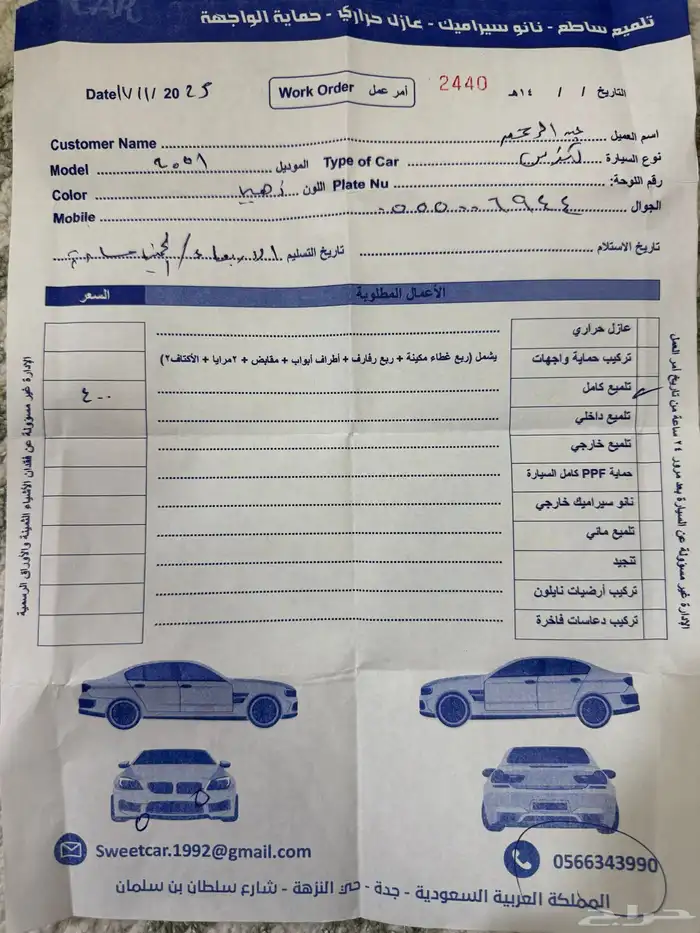 CAR
تلميع ساطع - نانو سيراميك - عازل حراري - حماية الواجهة
التاريخ / / ١٤هـ 2440 أمر عمل Work Order Date ١٧/١١/ 2025
اسم العميل عبد الرحمن Customer Name
نوع السيارة لكزس Type of Car الموديل ٢٠٠١ Model
رقم اللوحة: Plate Nu اللون ذهبي Color
الجوال Mobile
تاريخ الاستلام تاريخ التسليم الاربعاء /
الأعمال المطلوبة السعر
عازل حراري
تركيب حماية واجهات يشمل (ربع غطاء مكينة + ربع رفارف + أطراف أبواب + مقابض + ٢مرايا + الأكتاف٢)
تلميع كامل ٤٠٠
تلميع داخلي
تلميع خارجي
حماية PPF كامل السيارة
نانو سيراميك خارجي
تلميع مائي
تنجيد
تركيب أرضيات نايلون
تركيب دعاسات فاخرة
الإدارة غير مسؤولة عن السيارة بعد مرور ٢٤ ساعة من تاريخ أمر العمل
الإدارة غير مسؤولة عن فقدان الأشياء الثمينة والأوراق الرسمية
Sweetcar.1992@gmail.com 0566343990
المملكة العربية السعودية - جدة - حي النزهة - شارع سلطان بن سلمان
حراج